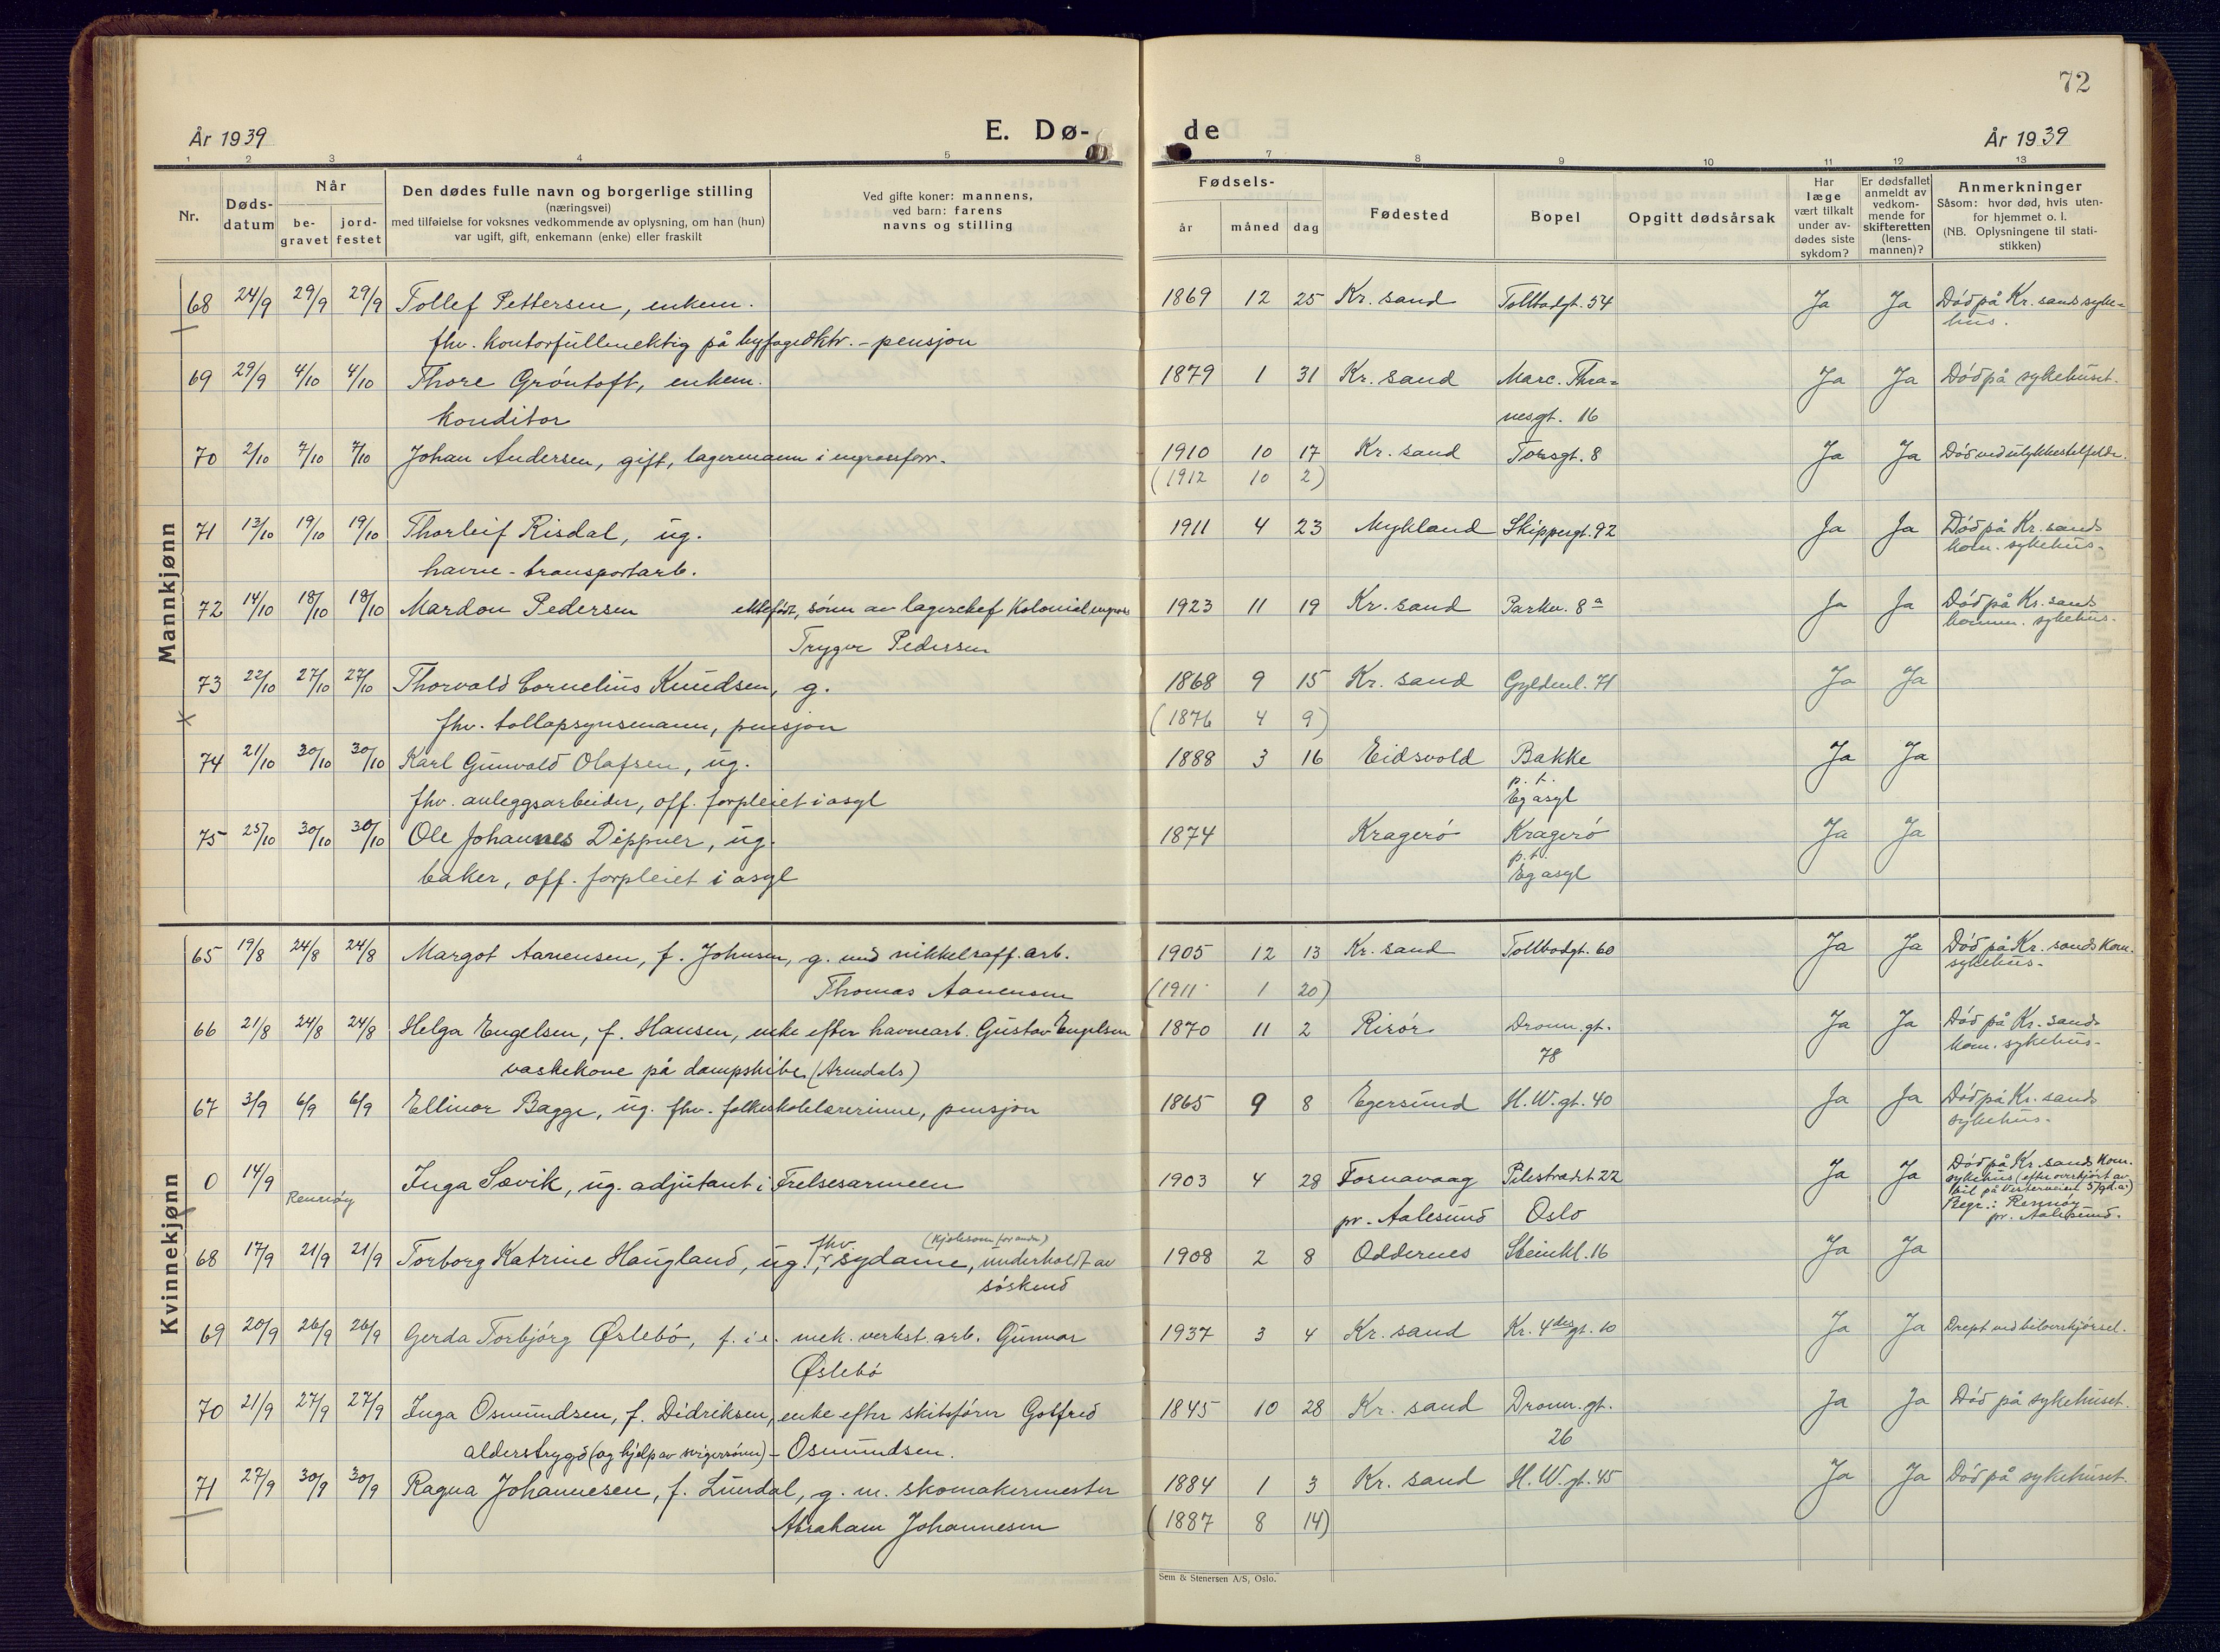 72
År 1939
E. Dø-
de
År 1939
1 2 3 4 5 7 8 9 10 11 12 13
Nr.
Døds-
datum
Når
be-
gravet
jord-
festet
Den dødes fulle navn og borgerlige stilling
(næringsvei)
med tilføielse for voksnes vedkommende av oplysning, om han (hun)
var ugift, gift, enkemann (enke) eller fraskilt
Ved gifte koner: mannens,
ved barn: farens
navns og stilling
Fødsels-
år måned dag
Fødested
Bopel
Opgitt dødsårsak
Har
læge
vært tilkalt
under av-
dødes siste
sykdom?
Er dødsfallet
anmeldt av
vedkom-
mende for
skifteretten
(lens-
mannen)?
Anmerkninger
Såsom: hvor død, hvis uten-
for hjemmet o. l.
(NB. Oplysningene til stati-
stikken)
Mannkjønn
68 24/9 29/9 29/9 Tollef Pettersen, enkem. 1869 12 25 Kr. sand Tollbodgt. 54 Ja Ja Död på Kr. sands syke-
hus.
fhv. kontorfullmektig på byfogedktr. - pensjon
69 29/9 4/10 4/10 Thore Gröntoft, enkem. 1879 1 31 Kr. sand Marc. Thra- Ja Ja Död på sykehuset.
konditor nesgt. 16
70 2/10 7/10 7/10 Johan Andersen, gift, lagermann i engrosforr. 1910 10 17 Kr. sand Torsgt. 8 Ja Ja Död ved ulykkestilfelde.
(1912 10 2)
71 13/10 19/10 19/10 Thorleif Risdal, ug. 1911 4 23 Mykland Skippergt. 92 Ja Ja Död på Kr. sands
kom. sykehus.
havne-transportarb.
72 14/10 18/10 18/10 Mardon Pedersen ektefödt, sönn av lagerchef Kolonial engros 1923 11 19 Kr. sand Parkv. 8a Ja Ja Död på Kr. sands
komm. sykehus.
Trygve Pedersen
73 22/10 27/10 27/10 Thorvald Cornelius Knudsen, g. 1868 9 15 Kr. sand Gyldenl. 71 Ja Ja
fhv. tollopsynsmann, pensjon (1876 4 9)
74 21/10 30/10 30/10 Karl Gunvald Olafsen, ug. 1888 3 16 Eidsvold Bakke Ja Ja
p. t.
fhv. anleggsarbeider, off. forpleiet i asyl Eg asyl
75 25/10 30/10 30/10 Ole Johannes Dippner, ug. 1874 Kragerö Kragerö Ja Ja
p. t.
baker, off. forpleiet i asyl Eg asyl
Kvinnekjønn
65 19/8 24/8 24/8 Margot Aanensen, f. Johnsen, g. med nikkelraff. arb. 1905 12 13 Kr. sand Tollbodgt. 60 Ja Ja Död på Kr. sands kom.
sykehus.
Thomas Aanensen (1911 1 20)
66 21/8 24/8 24/8 Helga Engelsen, f. Hansen, enke efter havnearb. Gustav Engelsen 1870 11 2 Risör Dronn. gt. Ja Ja Död på Kr. sands
kom. sykehus.
vaskekone på dampskibe (Arendals) 78
67 3/9 6/9 6/9 Ellinor Bagge, ug. fhv. folkeskolelærerinne, pensjon 1865 9 8 Egersund H.W. gt. 40 Ja Ja Död på Kr. sands
sykehus.
0 14/9 Remöy Inga Sævik, ug. adjutant i Frelsesarmeen 1903 4 28 Fosnavaag Pilestrædet 22 Ja Ja Död på Kr. sands kom.
sykehus (efter overkjört av
bil på Vesterveien
pr. Aalesund Oslo Begr.: Remöy
pr. Aalesund.
68 17/9 21/9 21/9 Torborg Katrine Haugland, ug., fhv. sydame, (kjolesöm for andre) underholdt av 1908 2 8 Oddernes Steinkl. 16 Ja Ja
söskend
69 20/9 26/9 26/9 Gerda Torbjörg Øslebö, f. i e. mek. verkst. arb. Gunnar 1937 3 4 Kr. sand Kr. 4des gt. 10 Ja Ja Drept ved biloverkjörsel.
Øslebö
70 21/9 27/9 27/9 Inga Osmundsen, f. Didriksen, enke efter skibsförer Gotfred 1845 10 28 Kr. sand Dronn. gt. Ja Ja Död på sykehuset.
alderstrygd (og hjelp av svigersönn) - Osmundsen. 26
71 27/9 30/9 30/9 Ragna Johannesen, f. Lundal, g. m. skomakermester 1884 1 3 Kr. sand H.W. gt. 45 Ja Ja Död på sykehuset.
Abraham Johannesen (1887 8 14)
Sem & Stenersen A/S, Oslo.